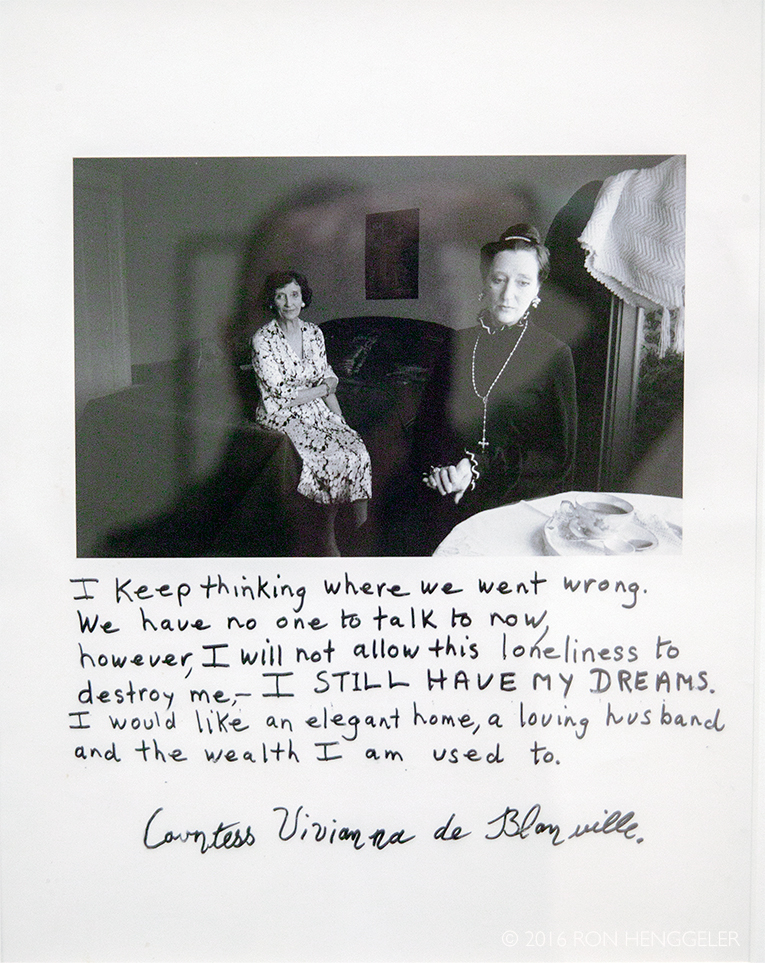 I Keep thinking where we went wrong.
We have no one to talk to now,
however, I will not allow this loneliness to
destroy me,– I STILL HAVE MY DREAMS.
I would like an elegant home, a loving husband
and the wealth I am used to.
Countess Vivianna de Blonville.
© 2016 RON HENGGELER